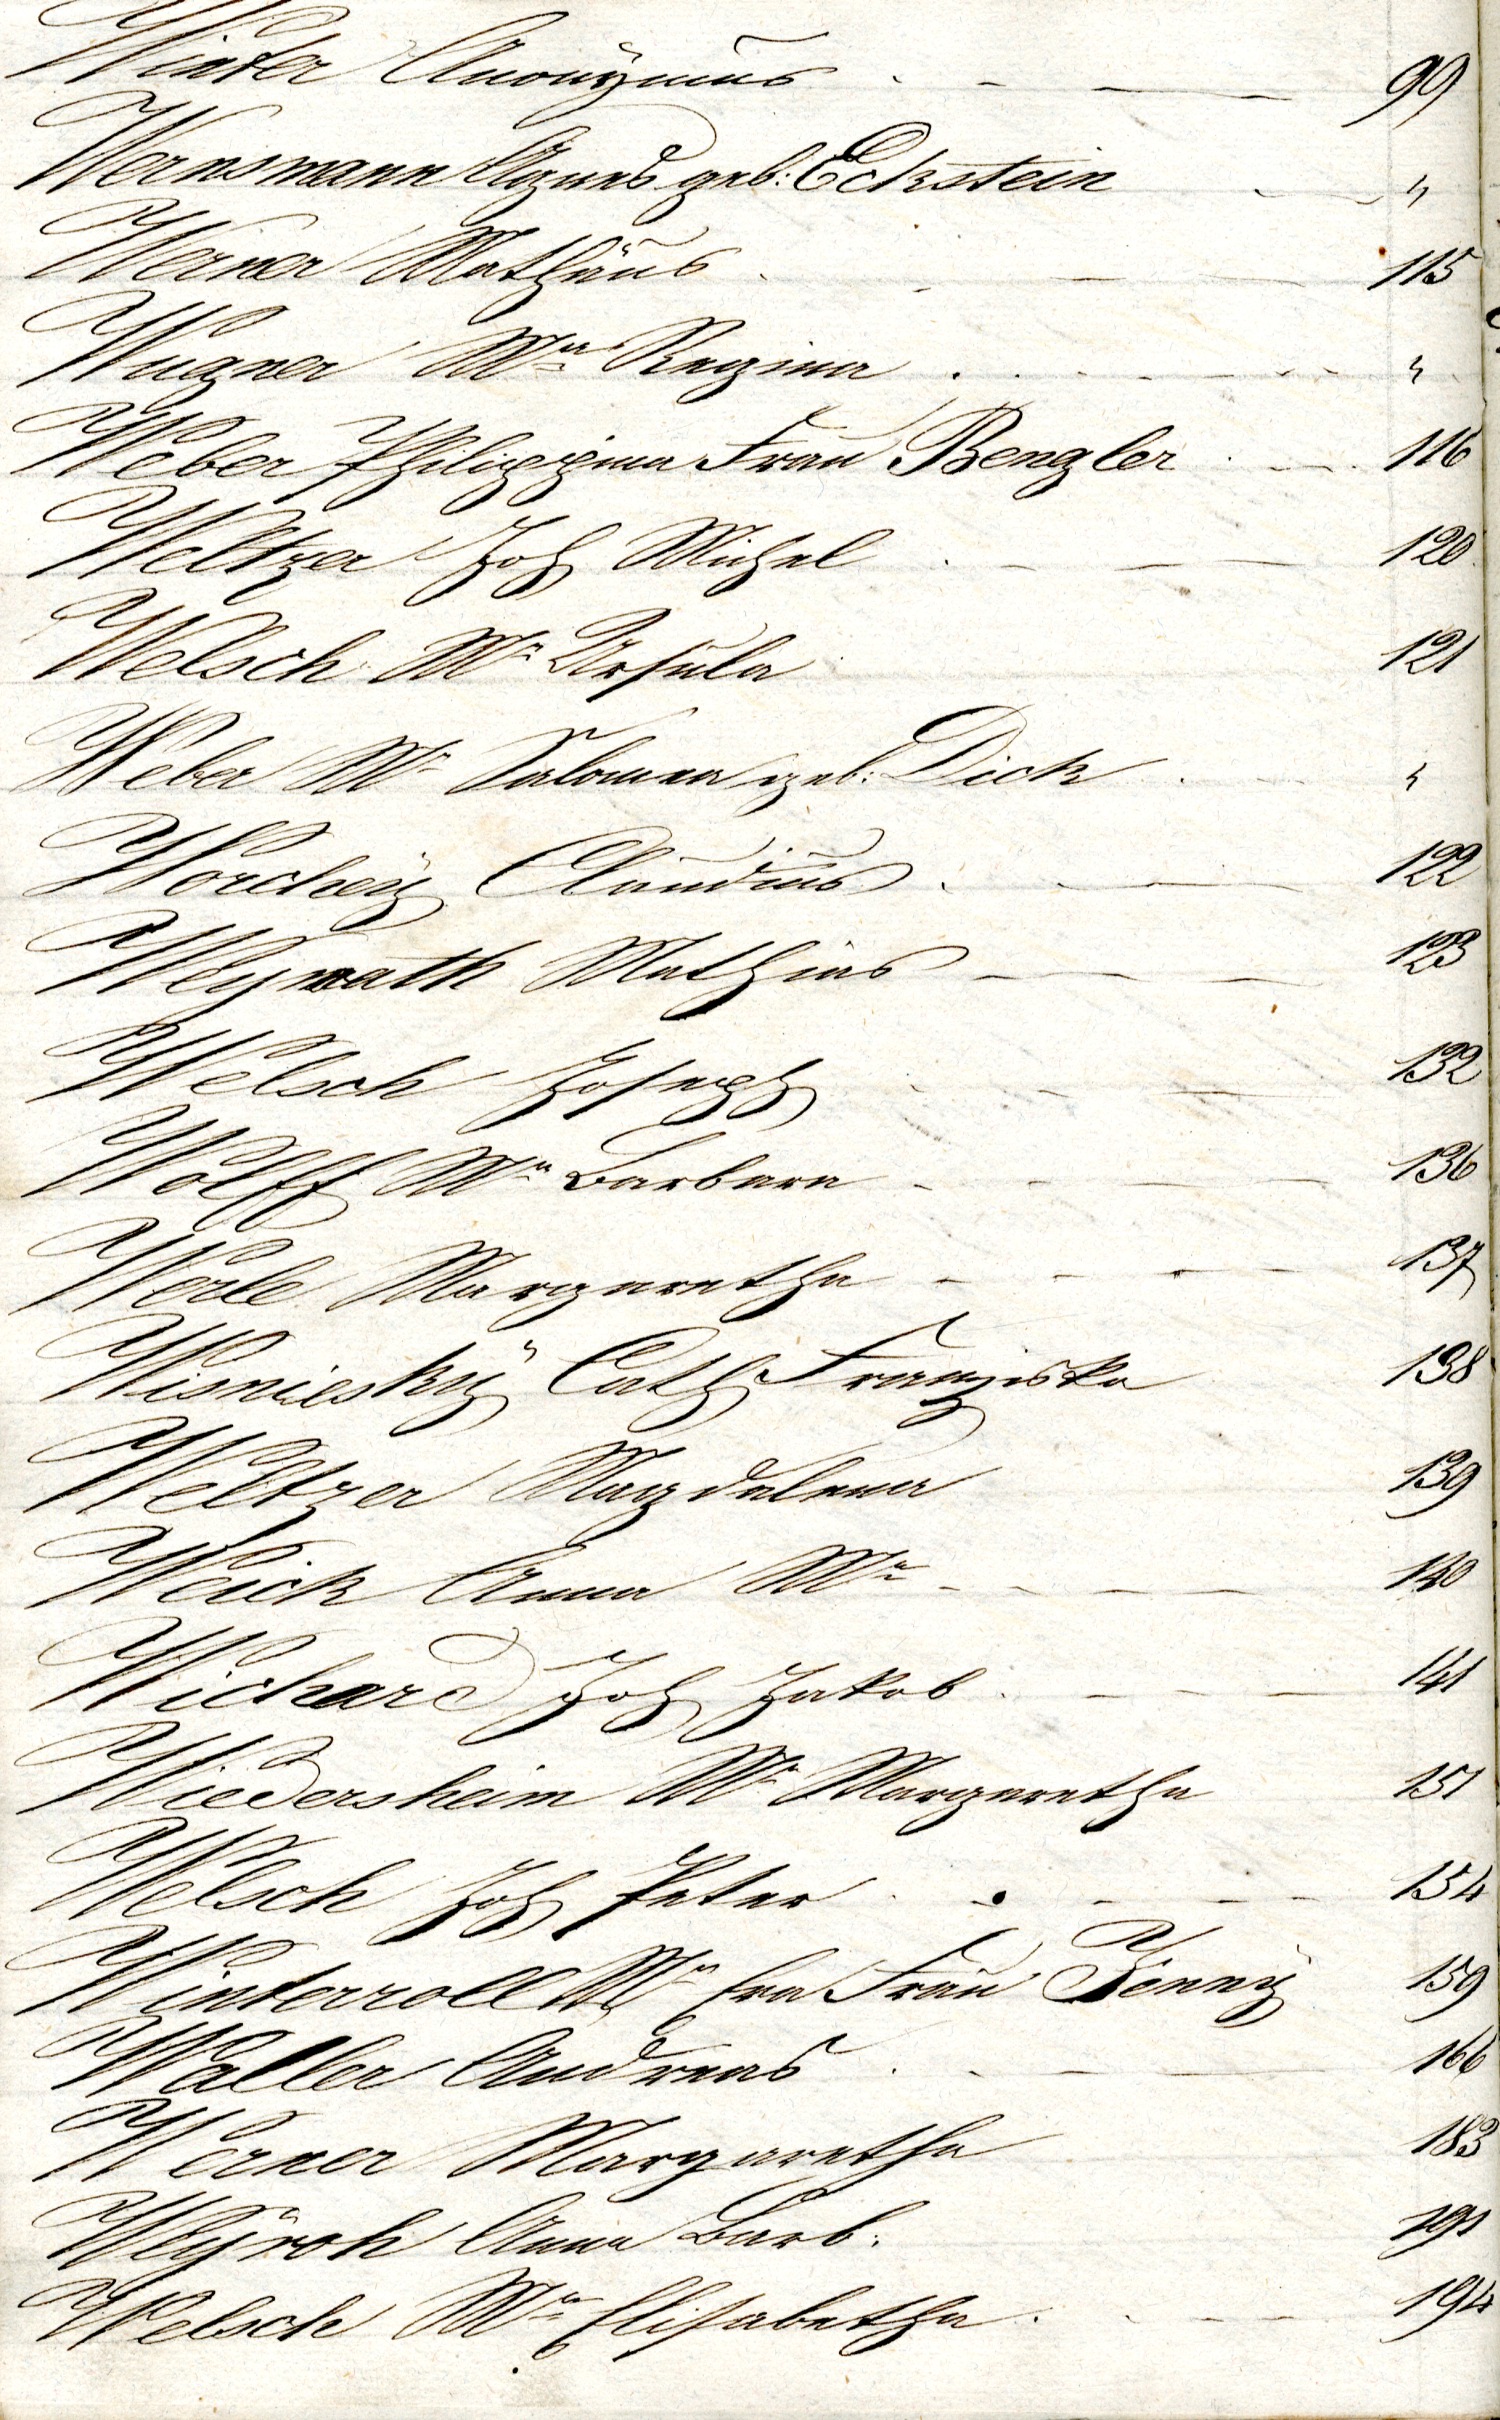 Winter Anonÿmus . - — — 99
Wernsmann Agnes geb: Eckstein — — "
Werner Mathäus . . — — 115
Wagner Mª Regina . . . - - - "
Weber Philippina Frau Bengler . - - . 116
Weltzer Joh Michel . - — — 120
Welsch Mª Ursula 121
Weber Mª Salomea geb: Dick . - "
Worcheÿ Claudius . - — — 122
Weyrath Mathias — — — 123
Welsch Joseph . - — — 132
Wolff Mª Barbara - - — — 136
Werle Margaretha - - - — 137
Wisnieskÿ Cath Franziska 138
Weltzer Magdalena 139
Weick Anna Mª - - - - — 140
Wichard Joh Jakob . - - - — 141
Wiedersheim Mª Margaretha 151
Welsch Joh Peter . - - - - 154
Winterroll Mª Eva Frau Jennÿ 159
Waller Andreas . - — — 166
Werner Margaretha 183
Weÿroh Anna Barb. 191
Welsch Mª Elisabetha . - - — 194